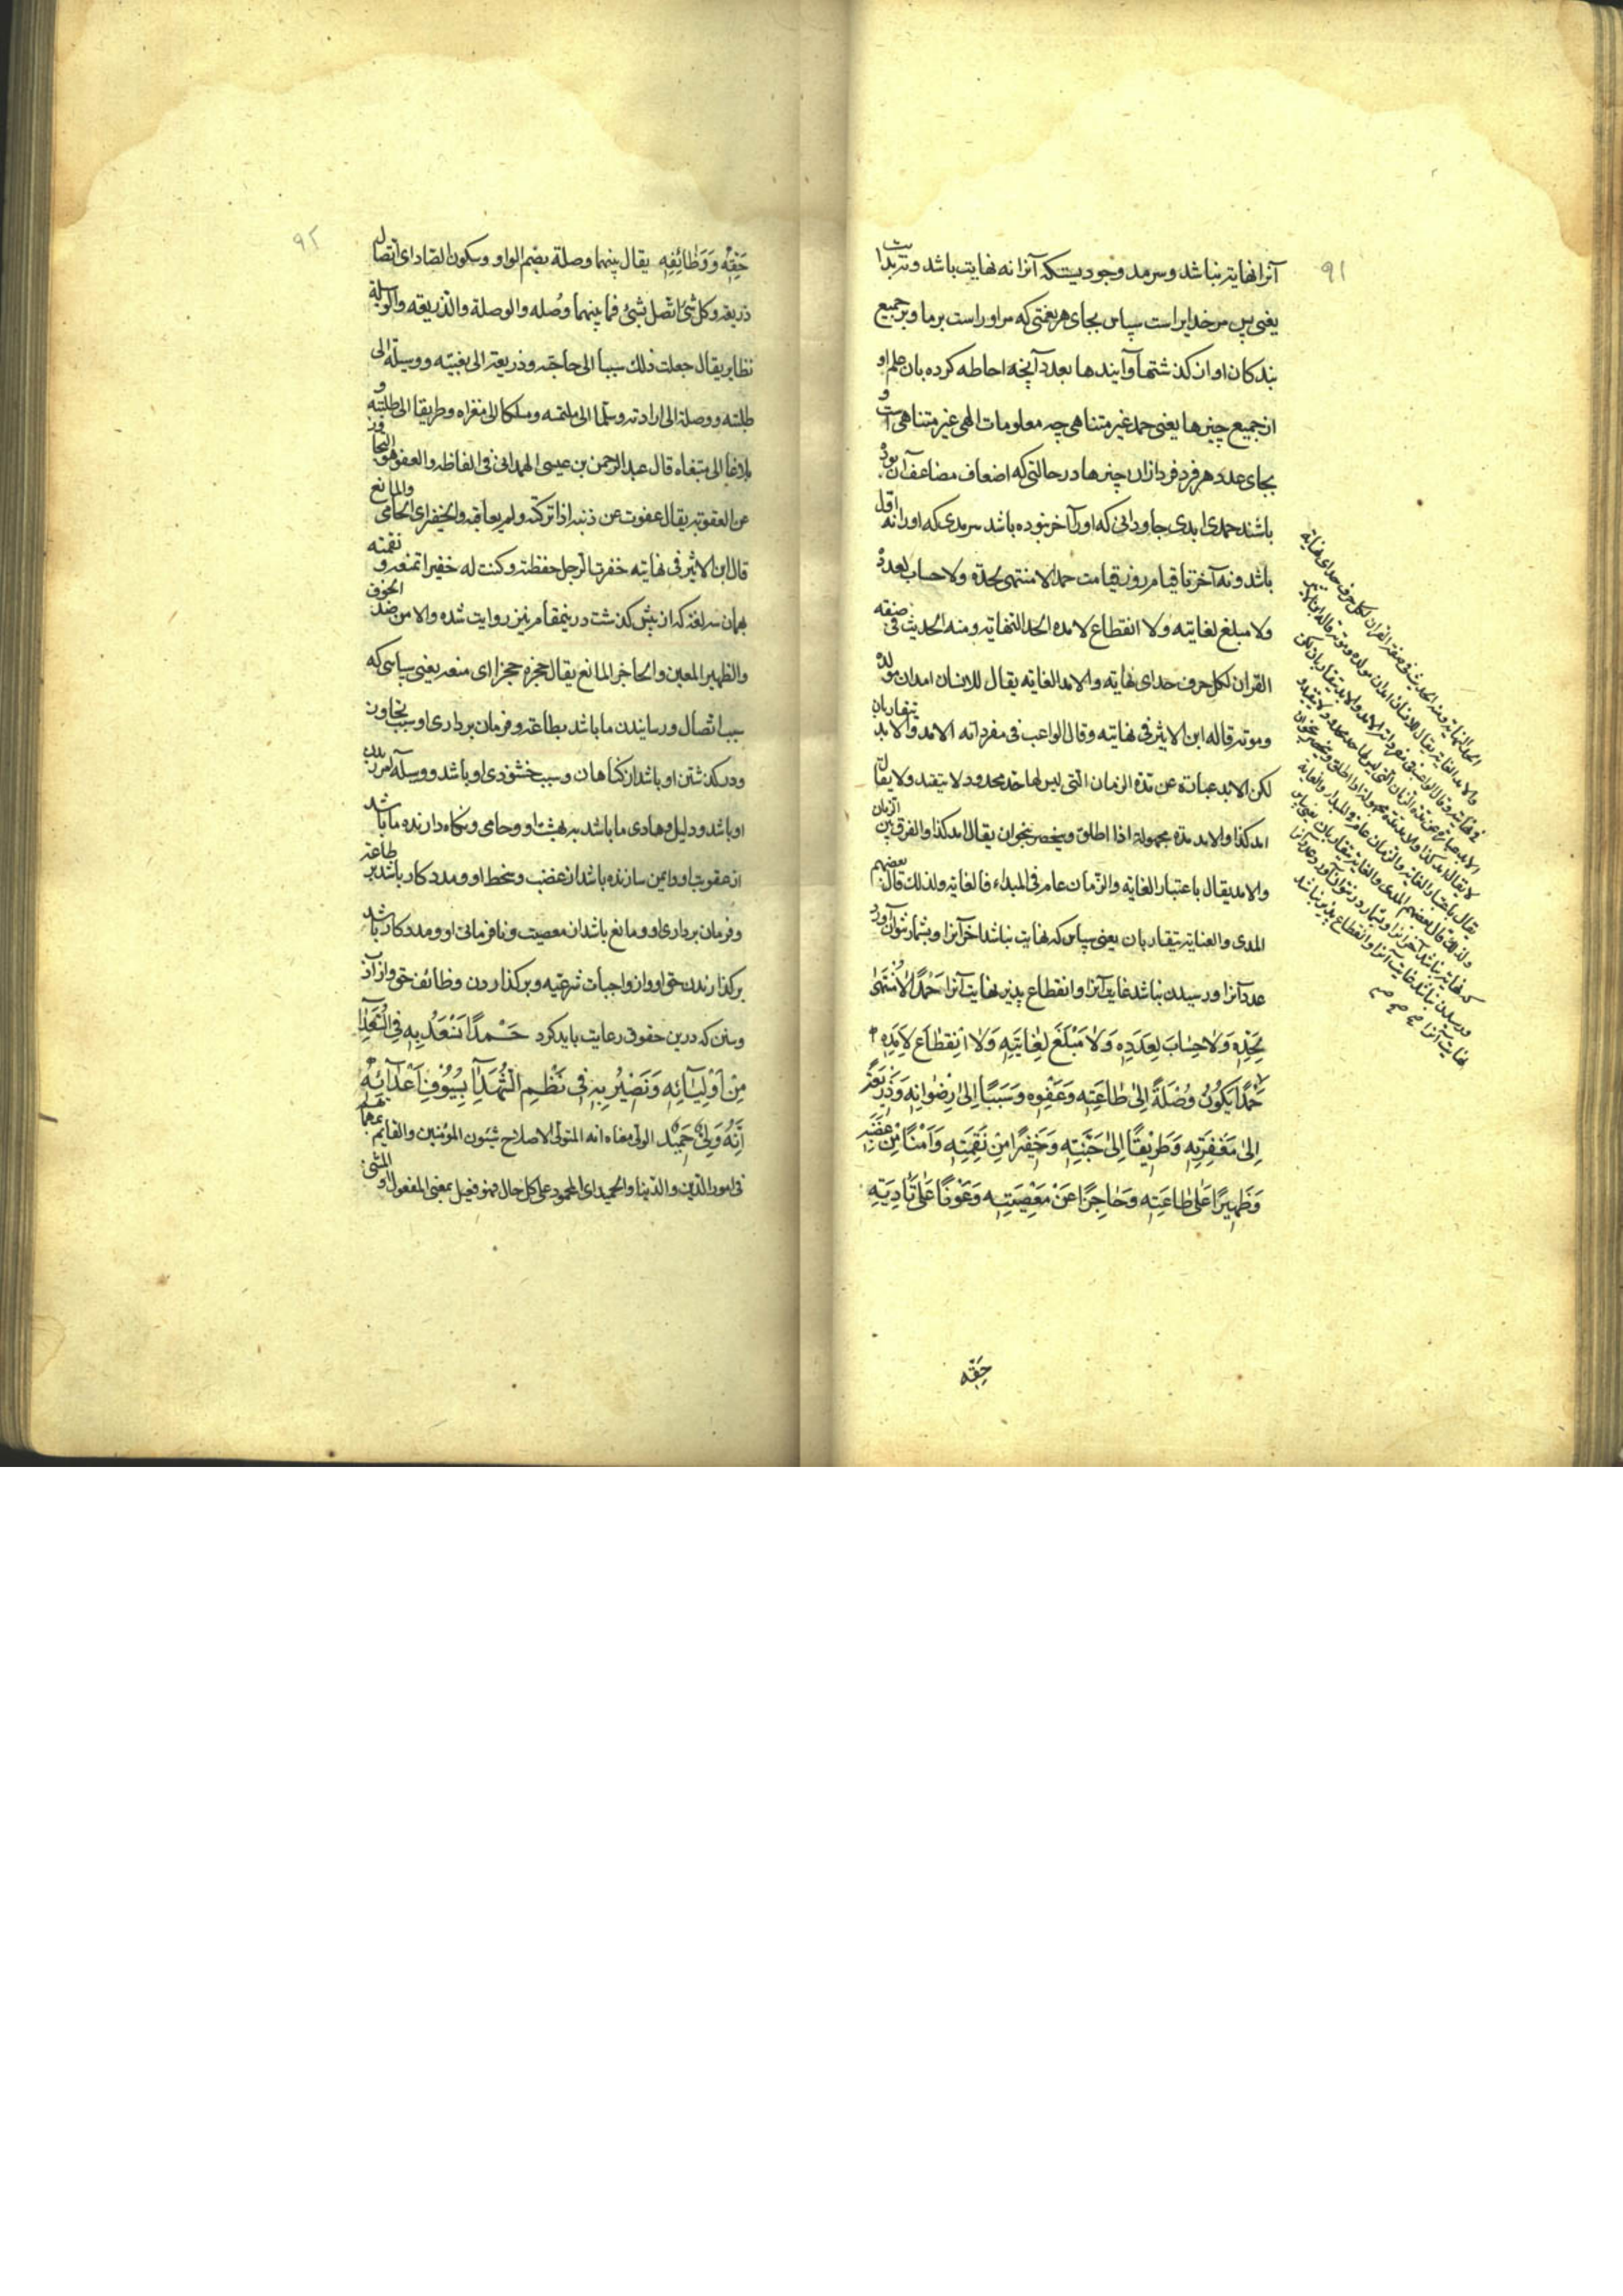 ۹۱
آنرا نهایتی نباشد و سرمد وجودیست که آنرا نه نهایت باشد و نه بدایت
یعنی پس مر خدایراست سپاس بجای هر نعمتی که مر او راست بر ما و بر جمیع
بندکان او از کذشتها و آیندها بعدد آنچه احاطه کرده بان علم او
از جمیع چیزها یعنی حمد غیر متناهی چه معلومات الهی غیر متناهی است و
بجای عدد هر فرد فرد از ان چیزها در حالتی که اضعاف مضاعف آن بوده
باشند حمدی ابدی جاودانی که او را آخر نبوده باشد سرمدی که او را نه اول
باشد و نه آخر تا قیام روز قیامت حمدا لا منتهی لحده ولا حساب لعدده
ولا مبلغ لغایته ولا انقطاع لامده الحد النهایه ومنه الحدیث فی صفة
القران لکل حرف حد ای نهایه والامد الغایه یقال للانسان امدان مولده
وموته قاله ابن الاثیر فی نهایته وقال الراغب فی مفرداته الامد والابد یتقاربان
لکن الابد عبارة عن مدة الزمان التی لیس لها حد محدود لا یتقید ولا یقال
ابد کذا والامد مدة مجهولة اذا اطلق وینحصر نحو ان یقال امد کذا والفرق بین الزمان
والامد یقال باعتبار الغایه والزمان عام فی المبداء فالغایه ولذلک قال بعضهم
المدی والغایة یتقاربان یعنی سپاسی که نهایت نباشد آخر آنرا و بشمار نتوان آورد
عدد آنرا و رسیدن نباشد غایت آنرا و انقطاع پذیر نهایت آنرا حَمْدًا لَا مُنْتَهٰی
لِحَدِّهِ وَلَا حِسَابَ لِعَدَدِهِ وَلَا مَبْلَغَ لِغَایَتِهِ وَلَا انْقِطَاعَ لِاَمَدِهِ
حَمْدًا یَکُونُ وُصْلَةً اِلٰی طَاعَتِهِ وَعَفْوِهِ وَسَبَبًا اِلٰی رِضْوَانِهِ وَذَرِیعَةً
اِلٰی مَغْفِرَتِهِ وَطَرِیقًا اِلٰی جَنَّتِهِ وَخَفِیرًا مِنْ نَقِمَتِهِ وَاَمْنًا مِنْ غَضَبِهِ
وَظَهِیرًا عَلٰی طَاعَتِهِ وَحَاجِزًا عَنْ مَعْصِیَتِهِ وَعَوْنًا عَلٰی تَأْدِیَةِ
حَقِّهِ
الحد النهایه ومنه الحدیث فی صفة القران لکل حرف حد ای نهایة
والامد الغایه یقال للانسان امدان مولده وموته قاله ابن الاثیر
فی نهایته وقال الراغب فی مفرداته الامد والابد یتقاربان لکن
الابد عبارة عن مدة الزمان التی لیس لها حد محدود ولا یتقید و
لا یقال ابد کذا والامد مدة مجهولة اذا اطلق وینحصر نحو ان
یقال باعتبار الغایه والزمان عام فی المبداء والغایة
ولذلک قال بعضهم المدی والغایة یتقاربان یعنی سپاس
که نهایت نباشد آخر آنرا و بشمار در نتوان آورد عدد آنرا
و رسیدن نباشد غایت آنرا و انقطاع پذیر نباشد
نهایت آنرا صح صح صح
۹۲
حَقِّهِ وَوَظَائِفِهِ یقال بینهما وصلة بضم الواو وسکون الصاد ای اتصال
ذریعه وکل شئ اتصل بشئ فما بینهما وُصله والوصلة والذریعه والوسیلة
نظایر یقال جعلت ذلک سببا الی حاجته وذریعة الی بغیته ووسیلة الی
طلبته ووصلة الی ارادته وسلّما الی ملتمسه ومسلکا الی مغزاه وطریقا الی طلبته و
بلاغا الی مبتغاه قال عبد الرحمن بن عیسی الهمدانی فی الفاظه والعفو هو التجاوز
عن العقوبه یقال عفوت عن ذنبه اذا ترکته ولم یعاقبه والخفیر ای الحامی والمانع
قال ابن الاثیر فی نهایته خفرت الرجل حفظته وکنت له خفیرا تمنعه و نقمته
بهمان سه لغة که از پیش کذشت درینمقام نیز روایت شده والامن ضد الخوف
والظهیر المعین والحاجز المانع یقال حجزه حجزا ای منعه یعنی سپاسی که
سبب اتصال و رسانیدن ما باشد بطاعة و فرمان برداری او و سبب تجاوز
و درکذشتن او باشد از کناهان و سبب خشنودی او باشد و وسیله آمرزیدن
او باشد و دلیل و هادی ما باشد به بهشت او و حامی و نکاه دارنده ما باشد
از عقوبت او و ایمن سازنده باشد از غضب و سخط او و مددکار باشد بر طاعة
و فرمان برداری او و مانع باشد از معصیت و نافرمانی او و مددکار باشد
بر کذاردن حق او و از واجبات شرعیه و بر کذاردن وظائف حق و از آداب
و سنن که درین حقوق رعایت باید کرد حَمْدًا نَسْعَدُ بِهِ فِی السُّعَدَاءِ
مِنْ اَوْلِیَآئِهِ وَنَصِیرُ بِهِ فِی نَظْمِ الشُّهَدَاءِ بِسُیُوفِ اَعْدَآئِهِ
اِنَّهُ وَلِیٌّ حَمِیدٌ الولی معناه انه المتولی لاصلاح شئون المؤمنین والقایم بمهامهم
فی امور الدین والدنیا والحمید ای المحمود علی کل حال فهو فعیل بمعنی المفعول او المثنی